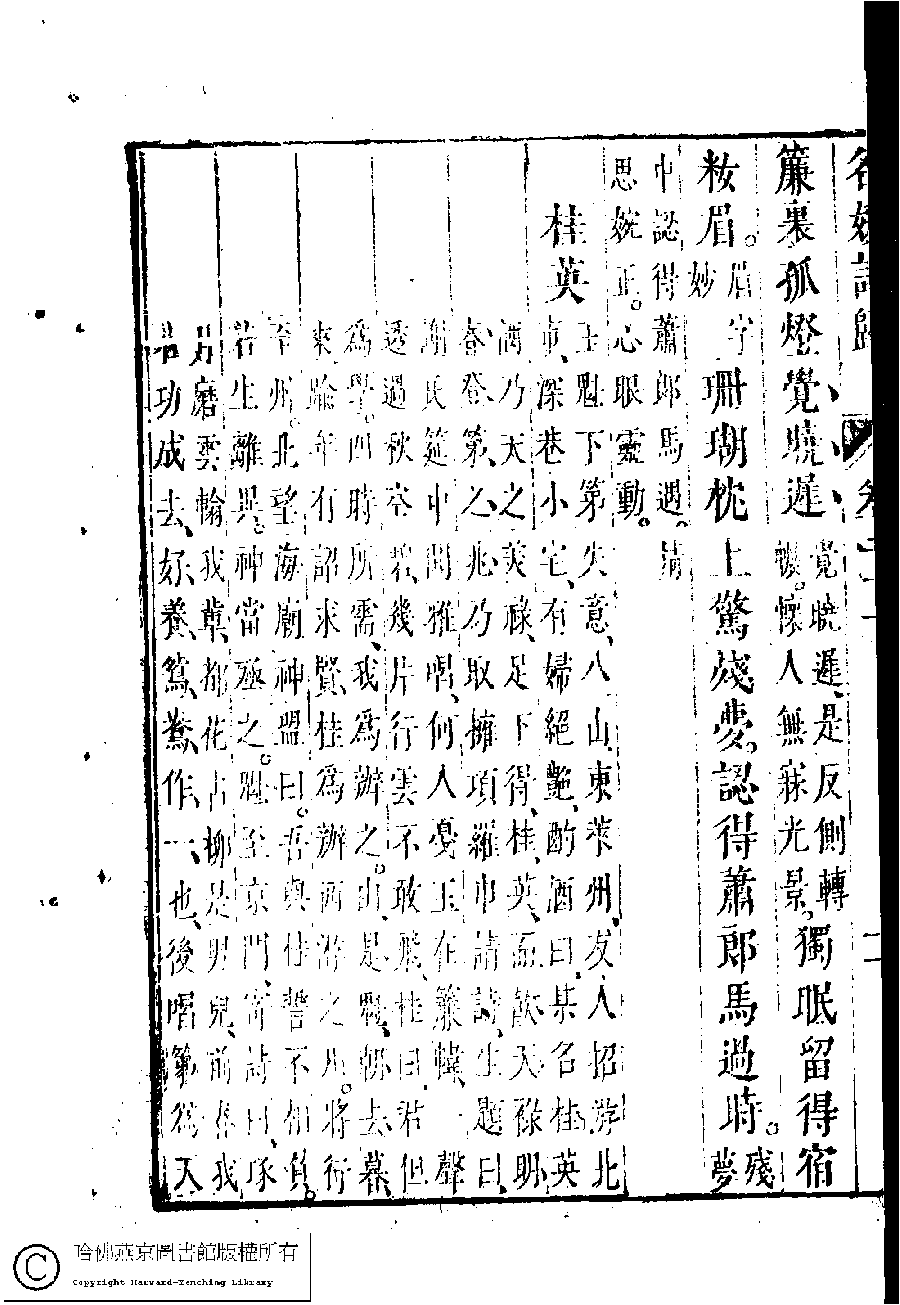 名媛詩歸　卷二十　二
簾裏孤燈覺曉遲
覺曉遲、是反側轉
輾。懷人無寐光景。
獨眠留得宿
籹眉。
眉字
妙
珊瑚枕上驚殘夢。認得蕭郎馬過時。
殘
夢
中認得蕭郎馬過。情
思婉正。心眼靈動。
桂英
王魁下第失意、入山東萊州、友人招游北
市、深巷小宅、有婦絕艷、酌酒曰、某名桂英
酒乃天之美祿、足下得桂英、而飲天祿、明
春登第之兆、乃取擁項羅巾請詩、生題曰、
謝氏筵中聞雅唱、何人戞玉在簾幃、一聲
透過秋空碧、幾片行雲不敢飛、桂曰、君但
為學。四時所需、我為辦之。由是魁朝去暮
來、踰年有詔求賢、桂為辦西游之用。將行
至州北望海廟神盟曰。吾與桂誓不相負。
若生離異。神當殛之。魁至京門、寄詩曰、琢
月磨雲輸我輩、都花占柳是男兒、前春我
若功成去、好養鴛鴦作一池、後唱第為天
哈佛燕京圖書館版權所有
Copyright Harvard-Yenching Library